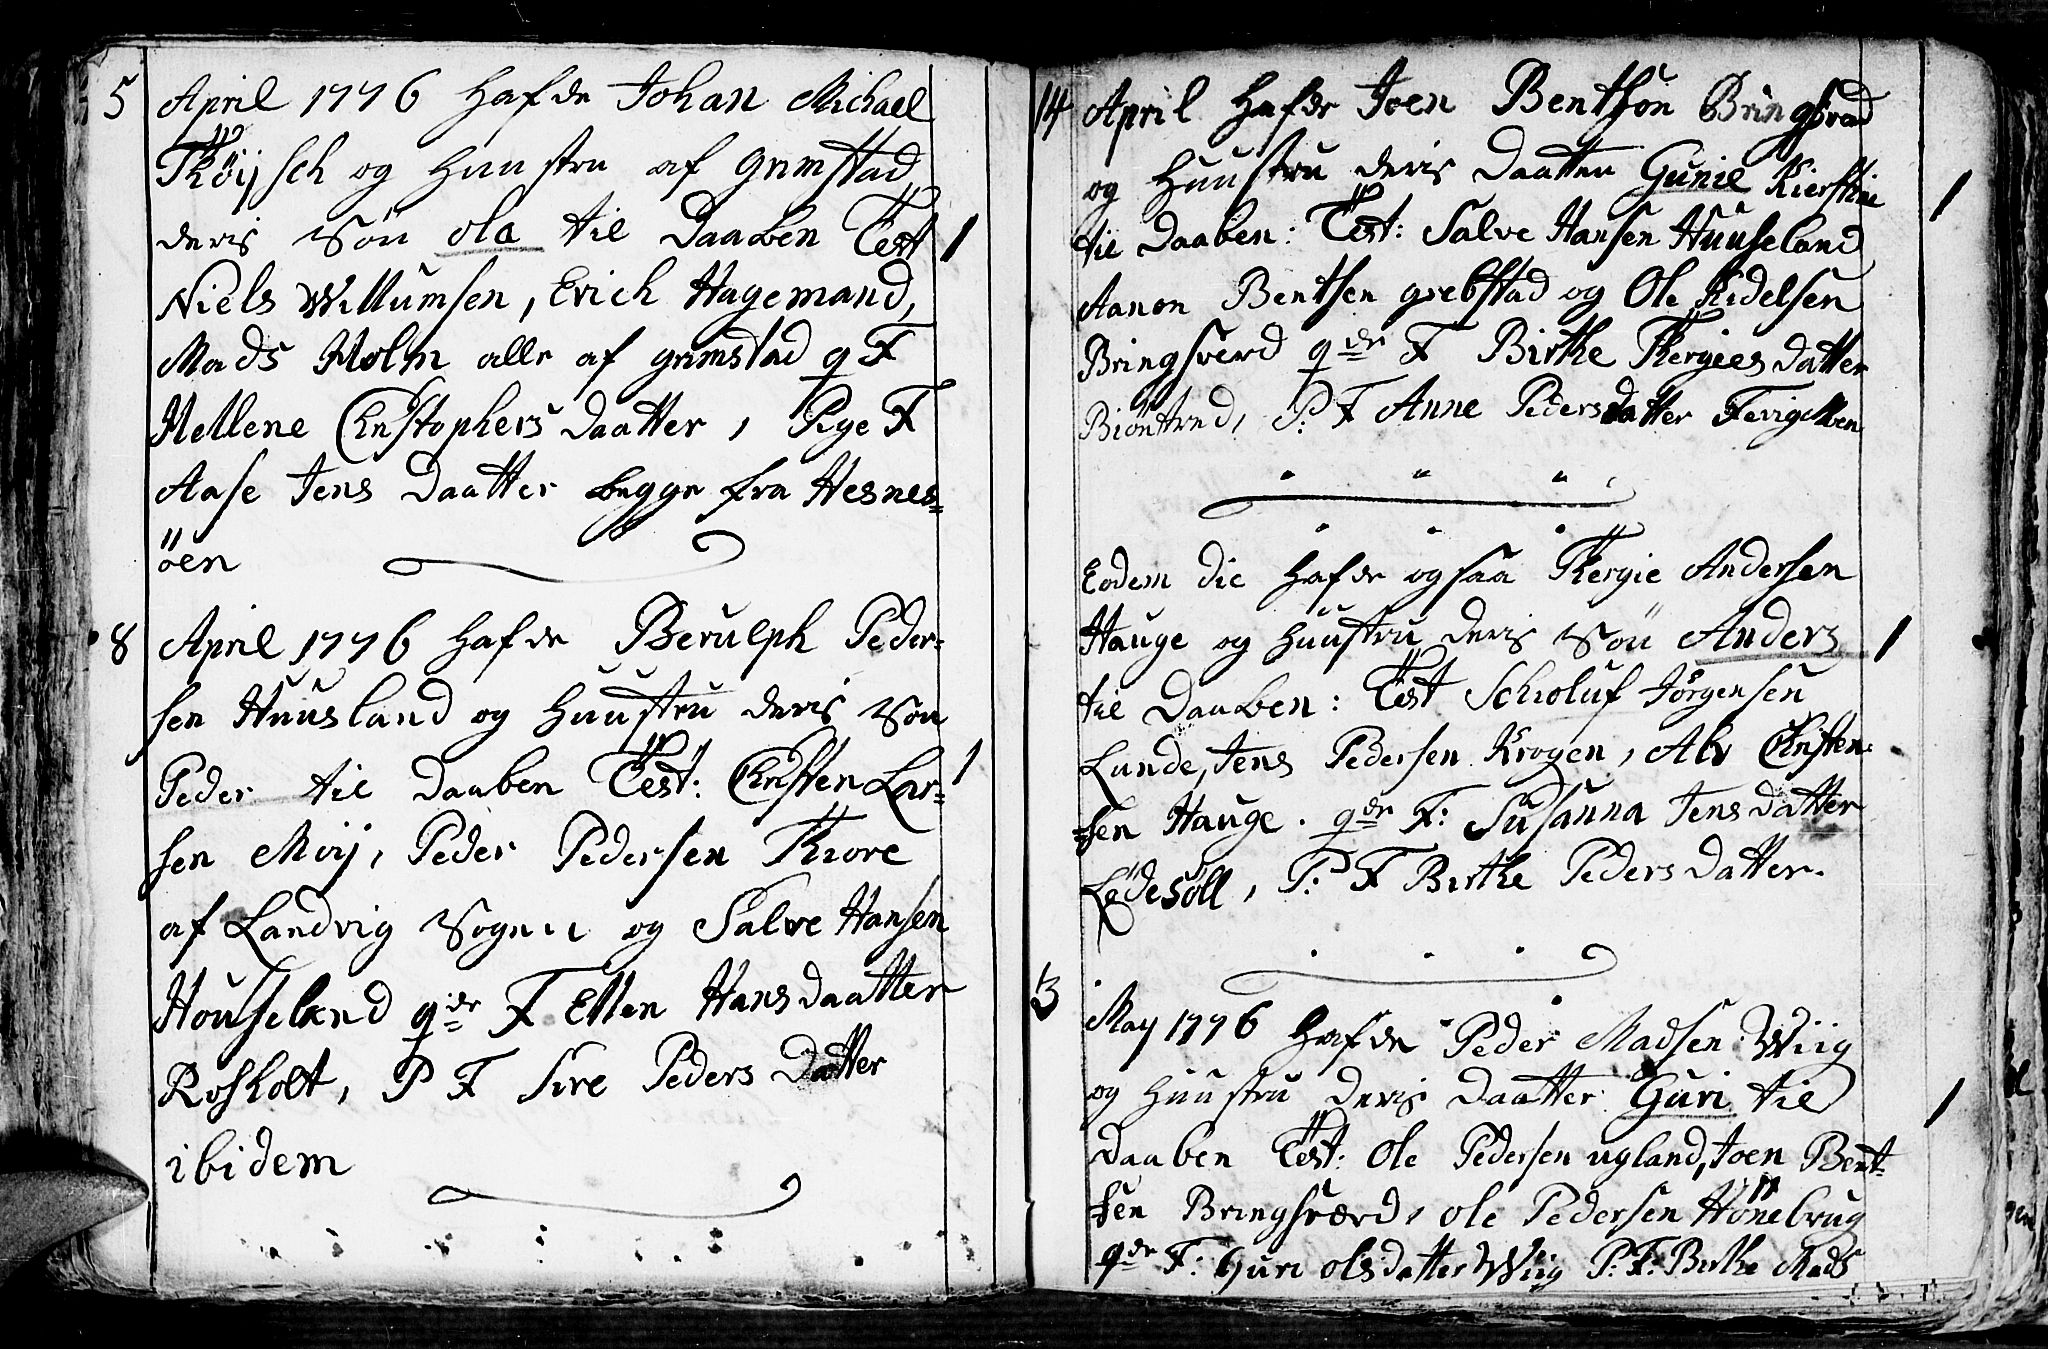 5 April 1776 Hafde Johan Michael
Tkøÿsch og Huustru af grimstad
deris Søn Ole til Daaben Test 1
Niels Willumsen, Erich Hagemand,
Mads Holm alle af grimstad q F
Hellene Christophers Daatter, Pige F
Aase Jens Daatter begge fra Hesnes=
øen
8 April 1776 Hafde Berulph Peder=
sen Huusland og Huustru deris Søn
Peder til Daaben Test: Christen Lar= 1
sen Moÿ, Peder Pedersen Tkiore
af Landvig Sogn og Salve Hansen
Houseland qde F Ellen Hans Daatter
Rosholt, P F Sire Peders Datter
ibidem
14 April Hafde Joen Bentsøn Bringsverd
og Huustru deris Daatter Gunil Kierstine 1
til Daaben: Test: Salve Hansen Huuseland
Aanon Bentsen grebstad og Ole Kidelsen
Bringsverd qde F Birthe Tkergies Datter
Biøntred, P: F Anne Peders datter
Eodem die Hafde ogsaa Tkergie Andersen
Hauge og Huustru deris Søn Anders 1
til Daaben: Test Schioluf Jørgensen
Lunde, Jens Pedersen Krogen, Alv Christen
=sen Hauge. qde F: Susanna Jens Datter
Lødesøll, P: F Birthe Peders Datter.
3 May 1776 Hafde Peder Madsen Wiig
og Huustru deris Daatter Guri til 1
Daaben Test: Ole Pedersen ugland, Joen Bent=
sen Bringsværd, ole Pedersen Hønebrug
qde F: Guri ols datter Wiig P: F: Birthe Mads